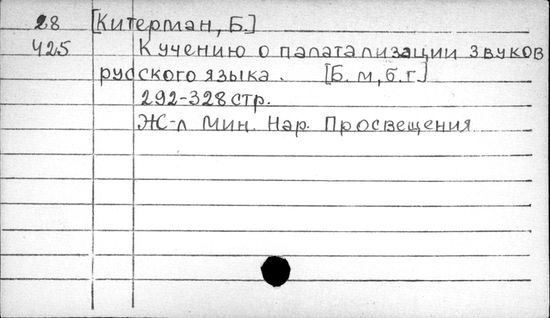 28 [Китерман, Б.]
425 К учению о палатализации звуков
русского языка. [Б. м, б. г.]
292-328 стр.
Ж-л Мин. Нар. Просвещения